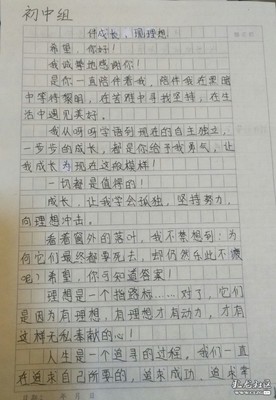 初中组
伴成长，圆理想
希望，你好！
我诚挚地感谢你！
是你一直陪伴着我，陪伴我在黑暗
中等待黎明，在苦难中寻找坚持，在生
活中遇见美好。
我从呀呀学语到现在的自主独立，
一步步的成长，都是你给予我勇气，让
我成长为现在这般模样！
一切都是值得的！
成长，让我学会孤独，坚持努力，
向理想冲击。
看着窗外的落叶，我不禁想到：为
何它们最终都要死去，却仍然乐此不疲
呢？希望，你可知道答案！
理想是一个指路标……对了，它们
是因为有理想，有理想才有动力，才有
这样无私奉献的心！
人生是一个追寻的过程，我们一直
在追求自己所要的，追求成功，追求幸
年 月 日